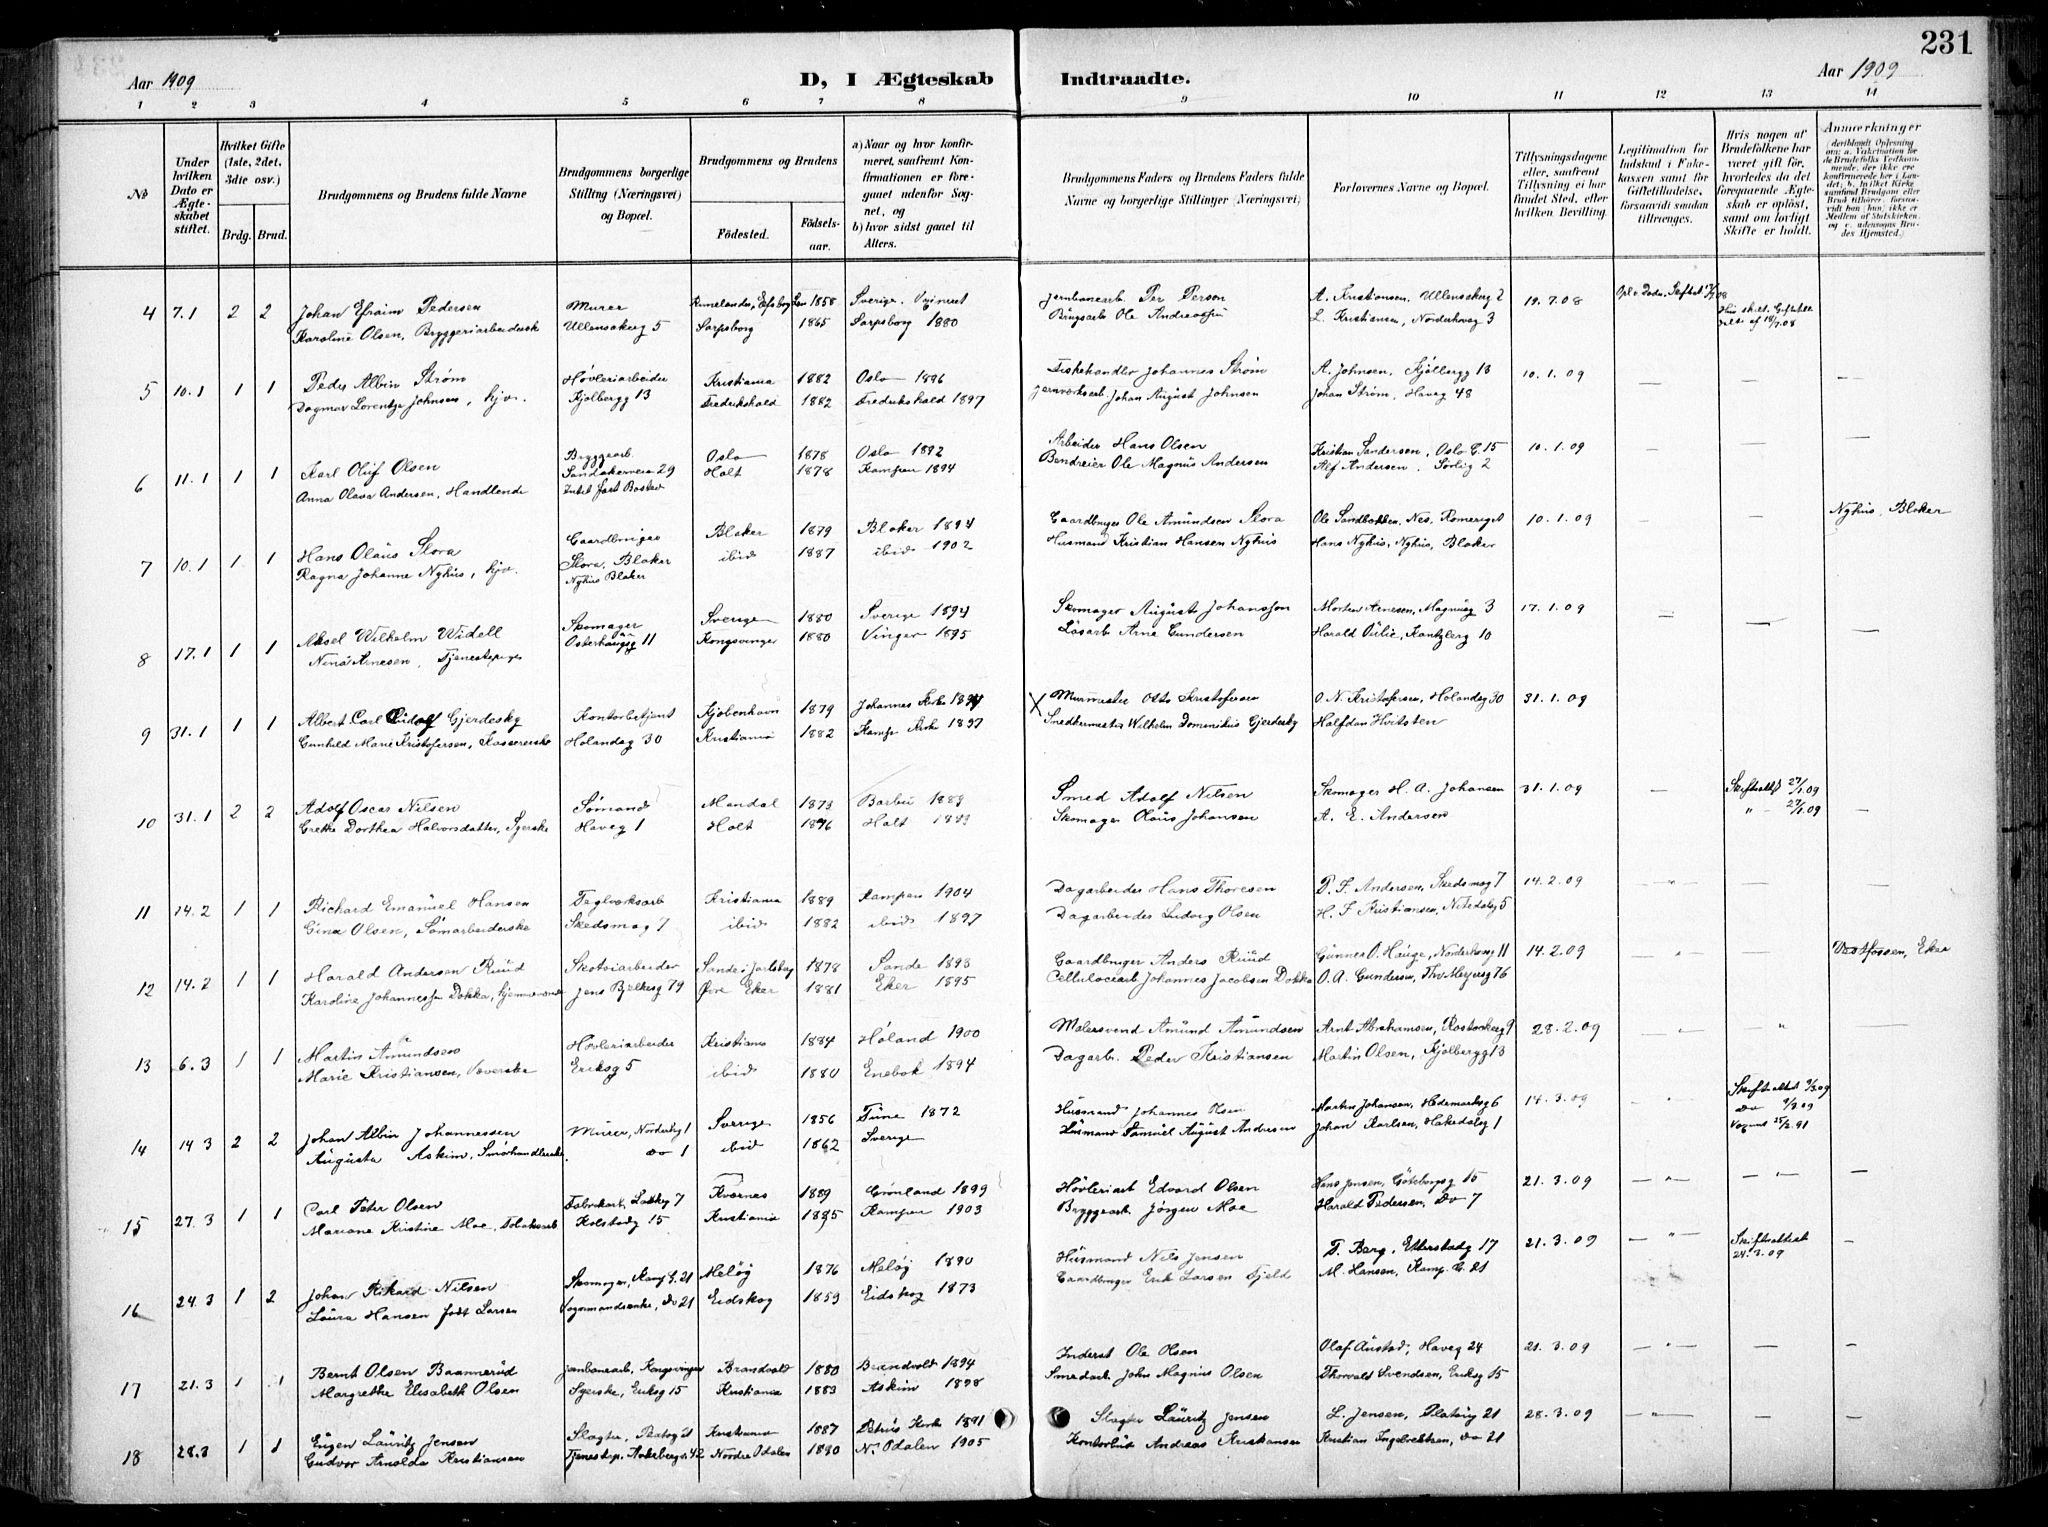 231
Aar 1909
D, I Ægteskab Indtraadte.
Aar 1909
1 2 3 4 5 6 7 8 9 10 11 12 13 14
No
Under hvilken Dato er Ægteskabet stiftet.
Hvilket Gifte (1ste, 2det, 3die osv.)
Brdg. Brud.
Brudgommens og Brudens fulde Navne
Brudgommens borgerlige Stilling (Næringsvei) og Bopæl.
Brudgommens og Brudens
Födested. Födselsaar.
a) Naar og hvor konfirmeret, saafremt Konfirmationen er foregaaet udenfor Sognet, og
b) hvor sidst gaaet til Alters.
Brudgommens Faders og Brudens Faders fulde Navne og borgerlige Stillinger (Næringsvei)
Forlovernes Navne og Bopæl.
Tillysningsdagene eller, saafremt Tillysning ei har fundet Sted, efter hvilken Bevilling.
Legitimation for Indskud i Enkekassen samt for Giftetilladelse, forsaavidt saadan tiltrænges.
Hvis nogen af Brudefolkene har været gift før, hvorledes da det foregaaende Ægteskab er opløst, samt om lovligt Skifte er holdt.
Anmærkninger
4 7.1 2 2 Johan Efraim Pedersen Murer 1858 Sverige Jernbanearb. Per Person A. Kristiansen, Ullensakerg 2 19.7.08
Karoline Olsen, Ullensakerg 5 Sarpsborg 1865 Sarpsborg 1880 Brugsarb Ole Andreassen L. Kristiansen, Norderhovg 3
5 10.1 1 1 Peder Albin Strøm Høvleriarbeider Kristiania 1882 Oslo 1896 Fiskehandler Johannes Strøm A. Johnsen, Kjølbergg 13 10.1.09 — — —
Dagmar Lorentze Johnsen, hjv. Kjølbergg 13 Fredrikshald 1882 Fredrikshald 1897 Jernverksarb Johan August Johnsen Johan Strøm, Haveg 48
6 11.1 1 1 Karl Oluf Olsen Bryggearb. Oslo 1878 Oslo 1892 Arbeider Hans Olsen Kristian Sandersen, Oslo G. 15 10.1.09 — — —
Anna Olava Andersen, Handlende Sandakerveien 29 Holt 1878 Kampen 1894 Ole Magnus Andersen Alf Andersen, Sørlig 2
7 10.1 1 1 Hans Olaus Slora Gaardbruger Blaker 1879 Blaker 1894 Gaardbruger Ole Amundsen Slora Ole Sandbakken, Nes, Romeriget 10.1.09 — — Nyhus, Blaker
Ragna Johanne Nyhus, hjv. Slora, Blaker ibid 1887 ibid 1902 Husmand Kristian Hansen Nyhus Hans Nyhus, Nyhus, Blaker
Nyhus Blaker
8 17.1 1 1 Aksel Wilhelm Widell Skomager Sverige 1880 Sverige 1894 Skomager August Johansson Morten Arnesen, Magnusg 3 17.1.09 — — —
Nina Arnesen, Tjenestepige Osterhausg 11 Kongsvinger 1880 Vinger 1895 Løsarb Arne Gundersen Harald Julie, Kantzlerg 10
9 31.1 1 1 Albert Carl Gjerdesky Kontorbetjent Kjøbenhavn 1879 Johannes Kirke 1894 X Murmester Otto Kristofersen O. N. Kristofersen, Holandsg 30 31.1.09
Gunhild Marie Kristofersen, Kassererske Holandsg 30 Kristiania 1882 Kampen Kirke 1897 Snedkermester Wilhelm Dominikus Gjerdesky Halfdan Hvitsten
10 31.1 2 2 Adolf Oscar Nilsen Sømand Mandal 1873 Barbu 1889 Smed Adolf Nilsen Skomager H. A. Johansen 31.1.09 — Skifteatt 27/1.09 —
Grethe Dorthea Halvorsdatter, Syerske Haveg 1 Holt 1876 Holt Skomager Olaus Johansen A. E. Andersen " 27/1.09
11 14.2 1 1 Richard Emanuel Hansen Teglverksarb Kristiania 1889 Kampen 1904 Dagarbeider Hans Thoresen P. F. Andersen, Skedsmog 7 14.2.09 — — —
Gina Olsen, Sømarbeiderske Skedsmog 7 ibid 1882 ibid 1897 Dagarbeider Ludvig Olsen H. F. Kristiansen, Nitedalsg 5
12 14.2 1 1 Harald Andersen Ruud Skotøiarbeider Sande i Jarlsberg 1878 Sande 1893 Gaardbruger Anders Ruud Gunner O. Hauge, Norderhovg 11 14.2.09 " — Eker
Karoline Dokka, hjemmeværende Jens Bjelkesg 79 Øvre Eker 1881 Eker 1895 Cellulosearb Johannes Jacobsen Dokka O. A. Gundersen, Thv Meyersg 76
13 6.3 1 1 Martin Amundsen Høvleriarbeider Kristiania 1884 Høland 1900 Malersvend Amund Amundsen Arnt Abrahamsen, Rostockerg 9 28.2.09 " " —
Marie Kristiansen, Væverske Eriksg 5 ibid 1880 Enebak 1894 Dagarb. Peder Kristiansen Martin Olsen, Kjølbergg 13
14 14.3 2 2 Johan Albin Johannessen Murer, Norderhg 1 Sverige 1856 Tune 1872 Husmand Johannes Olsen Martin Johansen, Hedemarksg 6 14.3.09 " Skifteattest 9/3.09
Augusta Askim, Smørhandlerske do 1 ibid 1862 Sverige Husmand Samuel August Andersen Johan Karlsen, Hakedalsg 1 Do 9/3.09
15 27.3 1 1 Carl Peter Olsen 7 Kværnes 1889 Grønland 1899 Høvleriarb Edvard Olsen Hans Jensen, Göteborgg 15 21.3.09 — " — " —
Mariane Kristine Moe, Tobaksarb Kolstadg 15 Kristiania 1885 Kampen 1903 Bryggearb Jørgen Moe Harald Pedersen, Do 7
16 24.3 1 2 Johan Rikard Nilsen Skomager, Kamp. G. 21 Meløy 1876 Meløy 1890 Husmand Nils Jensen T. Berg, Etterstadg 17 21.3.09 — " — Skifteattest —
Laura Hansen født Larsen Vognmandsenke, Do 21 Eidskog 1859 Eidskog 1873 Gaardbruger Erik Larsen Fjeld M. Hansen, Kamp. G. 21 24.3.09
17 21.3 1 1 Bernt Olsen Baannerud Jernbanearb, Kongsvinger Brandvold 1880 Brandvold 1894 Inderst Ole Olsen Olaf Austad, Haveg 24 21.3.09 — " — — —
Margrethe Elisabeth Olsen Syerske, Eriksg 15 Kristiania 1883 Askim 1898 Smedarb John Magnus Olsen Thorvald Svendsen, Eriksg 15
18 28.3 1 1 Eugen Lauritz Jensen Slagter, Platoug 21 Kristiania 1887 Petrus Kirke 1891 Slagter Lauritz Jensen L. Jensen, Platoug 21 28.3.09 — " — — —
Gudvor Arnolda Kristiansen Nordre Odalen 1880 N. Odalen 1905 Andreas Kristiansen Kristian Ingebretsen, Do 21